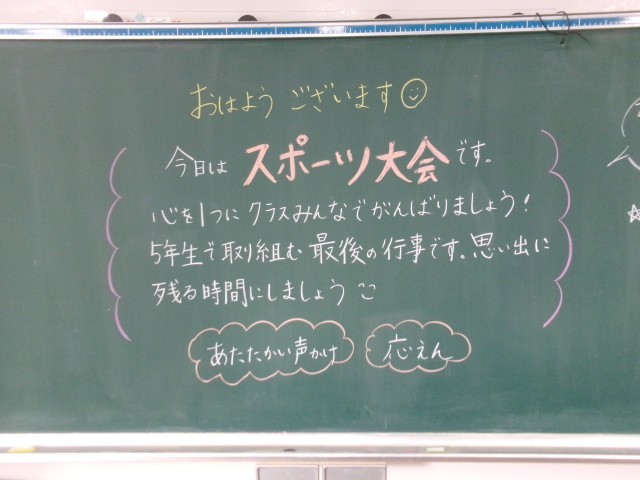 おはようございます
今日は スポーツ大会 です。
心を1つに クラスみんなでがんばりましょう!
5年生で取り組む 最後の行事です。思い出に
残る時間にしましょう
あたたかい声かけ 応えん